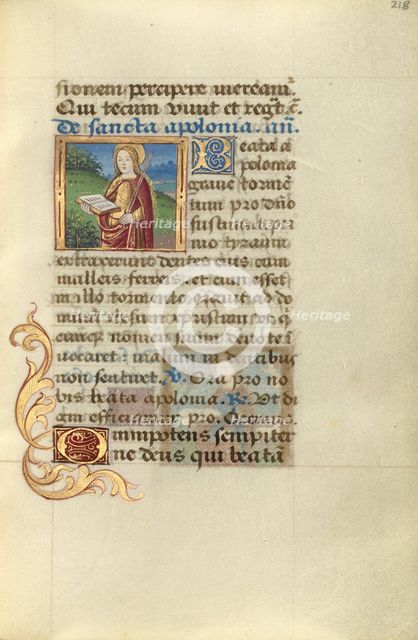 218
sionem percipere mereamˀ.
Qui tecum vivit et regt̃. ꝛc̃.
De sancta apolonia. añ.
Beata a
polonia
grave tormẽ
tum pro dño
sustinuit pri
mo tyranni
extraxerunt dentes eius cum
malleis ferreis. et cum esset
in illo tormento oravit ad do
minũ
nomen suum
vocaret: malum in dentibus
non sentiret. ℣. Ora pro no
bis beata apolonia. ℟. Ut di
gni efficiamur pro.
Omnipotens sempiter
ne deus qui beatã
Heritage
Images
Heritage
Images
Heritage
Images
Heritage
Images